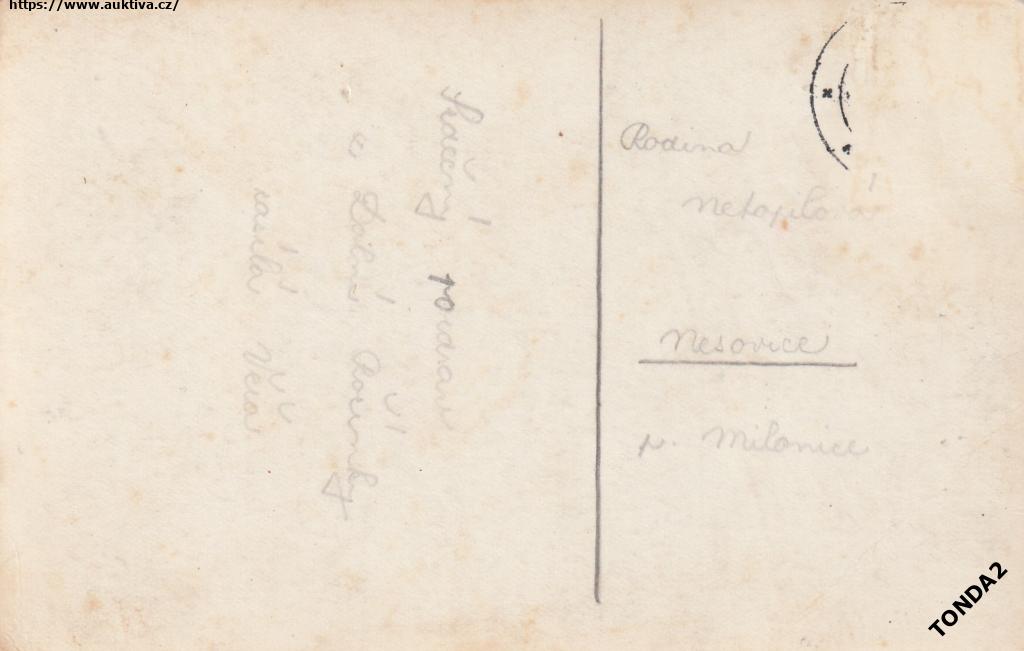 https://www.auktiva.cz/
Srdečný pozdrav
z Dolní Rožínky
zasílá Věra
Rodina
Netopilova
Nesovice
p. Milonice
TONDA2